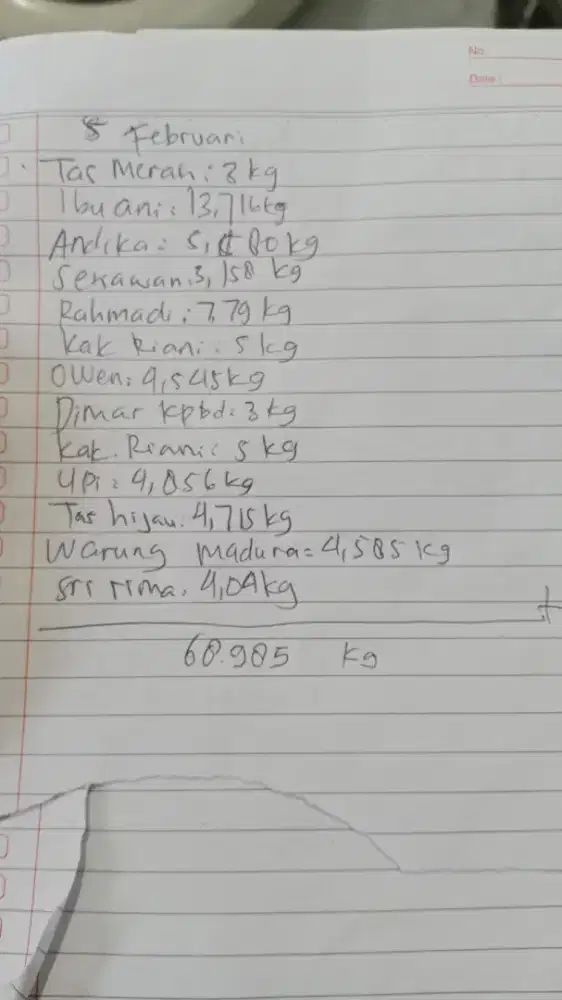 No
Date :
5 Februari
Tas Merah : 3 kg
Ibu ani : 13,716kg
Andika =
Sekawan: 3,158 kg
Rahmadi : 7,79 kg
Kak Riani : 5 kg
Owen: 4,545kg
Dimar kpbd: 3 kg
Kak. Riani: 5 kg
Upi : 4,856 kg
Tas hijau: 4,715kg
Warung madura = 4,585 kg
Sri rima: 4,04kg
+
68.985 kg